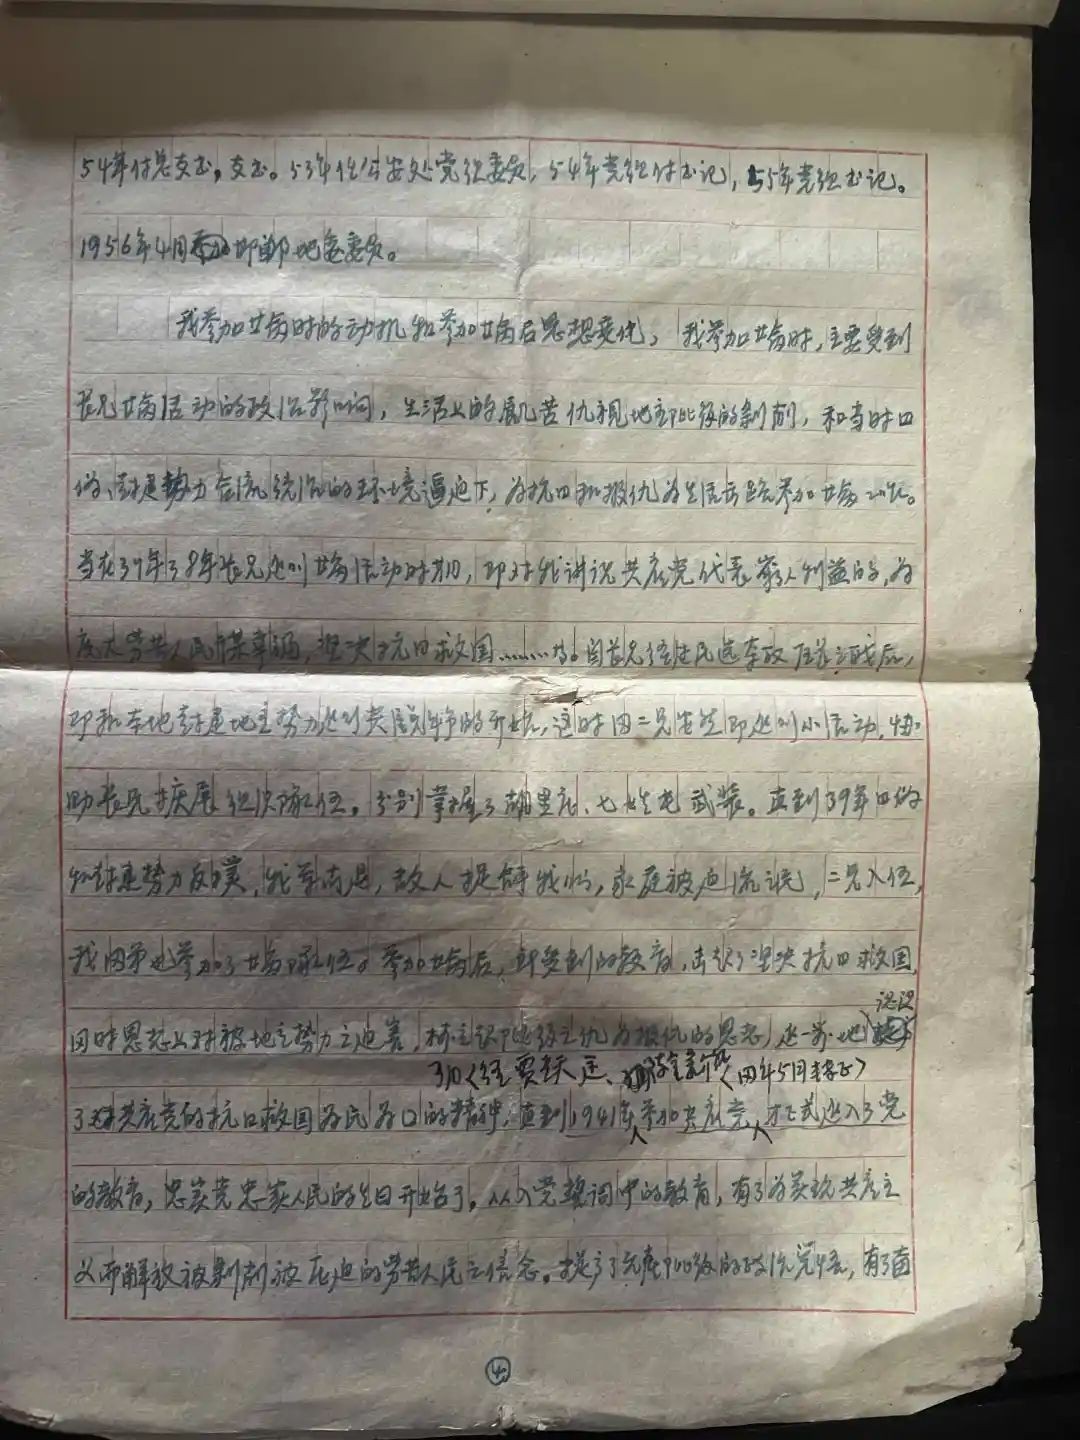 54年付总支书,支书。53年任公安处党组委员,54年党组付书记,55年党组书记。
1956年4月 邯郸地委委员。
我参加革命时的动机和参加革命后思想变化,我参加革命时,主要受到
长兄革命活动的政治影响,生活上的饥苦仇视地主阶级的剥削,和当时日
伪、封建势力合流统治的环境逼迫下,为抗日和报仇为生活出路参加革命工作。
当在37年38年长兄进行革命活动时期,即对我讲说共产党代表穷人利益的,为
广大劳苦人民谋幸福,坚决抗日救国……等。自长兄经过民选 后,
即和本地封建地主势力进行尖锐斗争的开始,这时因二兄失学即进行小活动,协
助长兄扩展组织队伍。分别掌握了胡里庄、七 屯武装。直到39年日伪
和封建势力反 ,我军南退,敌人捉拿我们,家庭被迫流亡,二兄入伍,
我因 也参加了革命队伍。参加革命后,即受到的教育,击起了坚决抗日救国,
认识
同时思想上对被地主势力之迫害,树立报阶级之仇为报仇的思想,进一步地
了对共产党的抗日救国为民为国的精神,直到1941年 参加共产党,才正式进入了党
的教育,忠实党忠实人民的 开始了。从入党整训中的教育,有了为实现共产主
义而解放被剥削被压迫的劳苦人民之信念。提高了无产阶级的政治觉悟,有了
4